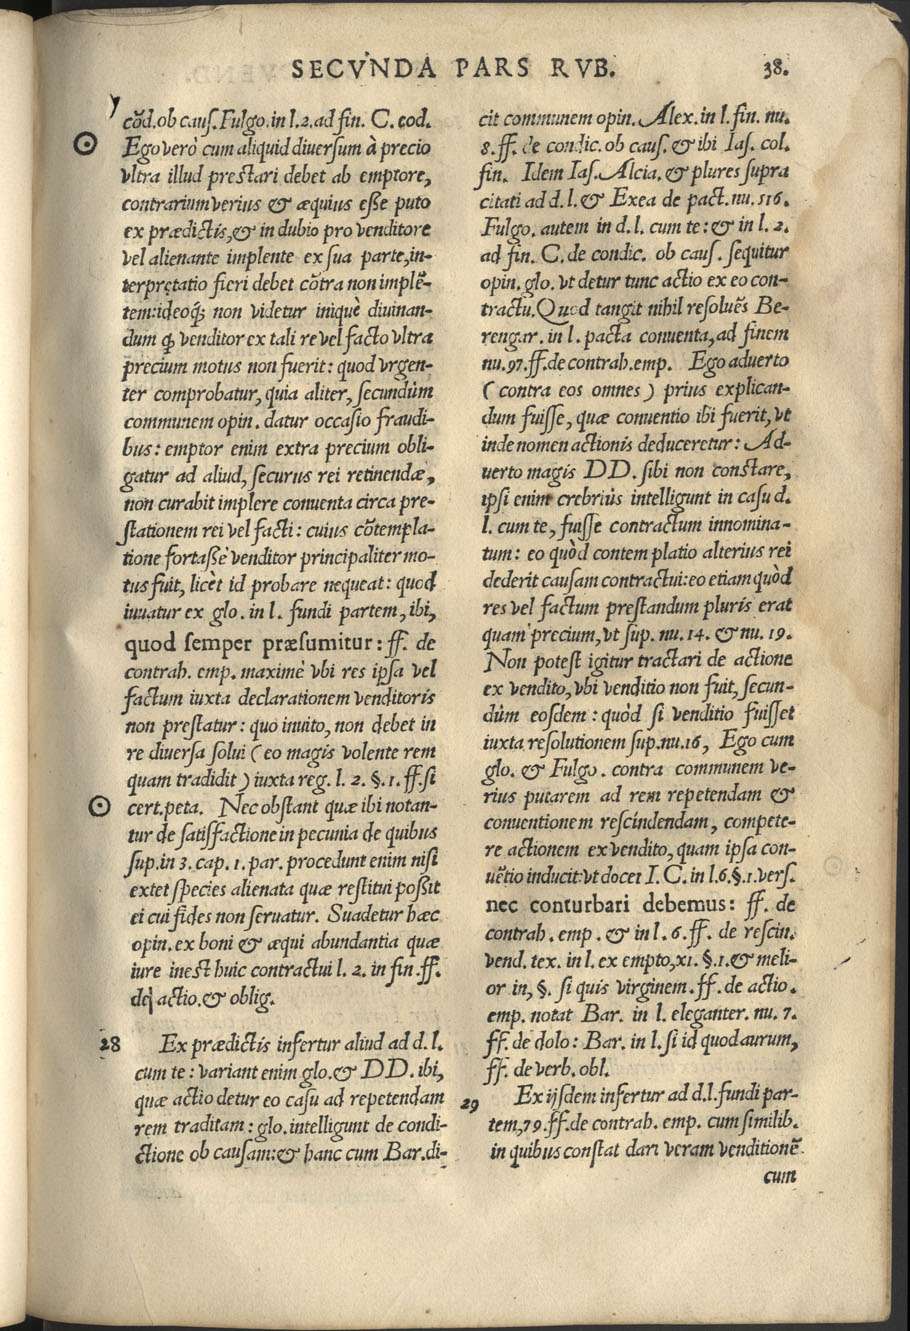 SECVNDA PARS RVB. 38.
cōd. ob caus. Fulgo. in l. 2. ad fin. C. eod.
Ego verò cum aliquid diuersum à precio
vltra illud prestari debet ab emptore,
contrarium verius & æquius esse puto
ex prædictis, & in dubio pro venditore
vel alienante implente ex sua parte, in-
terpretatio fieri debet cōtra non implē-
tem: ideoq́; non videtur iniquè diuinan-
dum ꝙ venditor ex tali re vel facto vltra
precium motus non fuerit: quod vrgen-
ter comprobatur, quia aliter, secundùm
communem opin. datur occasio fraudi-
bus: emptor enim extra precium obli-
gatur ad aliud, securus rei retinendæ,
non curabit implere conuenta circa pre-
stationem rei vel facti: cuius cōtempla-
tione fortassè venditor principaliter mo-
tus fuit, licèt id probare nequeat: quod
iuuatur ex glo. in l. fundi partem, ibi,
quod semper præsumitur: ff. de
contrah. emp. maximè vbi res ipsa vel
factum iuxta declarationem venditoris
non prestatur: quo inuito, non debet in
re diuersa solui (eo magis volente rem
quam tradidit) iuxta reg. l. 2. §. 1. ff. si
cert. peta. Nec obstant quæ ibi notan-
tur de satisfactione in pecunia de quibus
sup. in 3. cap. 1. par. procedunt enim nisi
extet species alienata quæ restitui possit
ei cui fides non seruatur. Suadetur hæc
opin. ex boni & æqui abundantia quæ
iure inest huic contractui l. 2. in fin. ff.
de actio. & oblig.
28 Ex prædictis infertur aliud ad d. l.
cum te: variant enim glo. & DD. ibi,
quæ actio detur eo casu ad repetendam
rem traditam: glo. intelligunt de condi-
ctione ob causam: & hanc cum Bar. di-
cit communem opin. Alex. in l. fin. nu.
8. ff. de condic. ob caus. & ibi Ias. col.
fin. Idem Ias. Alcia. & plures supra
citati ad d. l. & Exea de pact. nu. 516.
Fulgo. autem in d. l. cum te: & in l. 2.
ad fin. C. de condic. ob caus. sequitur
opin. glo. vt detur tunc actio ex eo con-
tractu. Quod tangit nihil resoluēs Be-
rengar. in l. pacta conuenta, ad finem
nu. 97. ff. de contrah. emp. Ego aduerto
(contra eos omnes) prius explican-
dum fuisse, quæ conuentio ibi fuerit, vt
inde nomen actionis deduceretur: Ad-
uerto magis DD. sibi non constare,
ipsi enim crebriùs intelligunt in casu d.
l. cum te, fuisse contractum innomina-
tum: eo quòd contemplatio alterius rei
dederit causam contractui: eo etiam quòd
res vel factum prestandum pluris erat
quam precium, vt sup. nu. 14. & nu. 19.
Non potest igitur tractari de actione
ex vendito, vbi venditio non fuit, secun-
dùm eosdem: quòd si venditio fuisset
iuxta resolutionem sup. nu. 16, Ego cum
glo. & Fulgo. contra communem ve-
rius putarem ad rem repetendam &
conuentionem rescindendam, compete-
re actionem ex vendito, quam ipsa con-
uētio inducit: vt docet I. C. in l. 6. §. 1. vers.
nec conturbari debemus: ff. de
contrah. emp. & in l. 6. ff. de rescin.
vend. tex. in l. ex empto, xi. §. 1. & meli-
or in, §. si quis virginem. ff. de actio.
emp. notat Bar. in l. eleganter. nu. 7.
ff. de dolo: Bar. in l. si id quod aurum,
ff. de verb. obl.
29 Ex ijsdem infertur ad d. l. fundi par-
tem, 79. ff. de contrah. emp. cum similib.
in quibus constat dari veram venditionē
cum